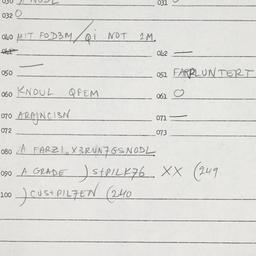 032 O
040 HIT FOD3M/qi NOT 2M.
062 —
050 —
051 FARLUNTERT
060 KNOUL QFEM
061 O
070 ARAJNCI3N
071 —
072
073
080 A FARZI. X3RUN7GSNODL
090 A GRADE )S+PILK76 XX (249
100 )CUS+PIL7EN (240